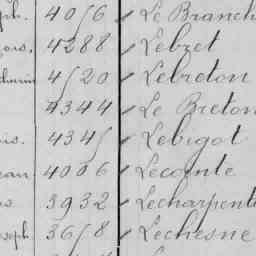 ph. 4056 Le Branch
ois. 4288 Lebret
4520 Lebreton
4344 Le Breton
is. 4345 Lebigot
ean 4006 Lecomte
s 3932 Lecharpenti
seph. 3658 Lechesne